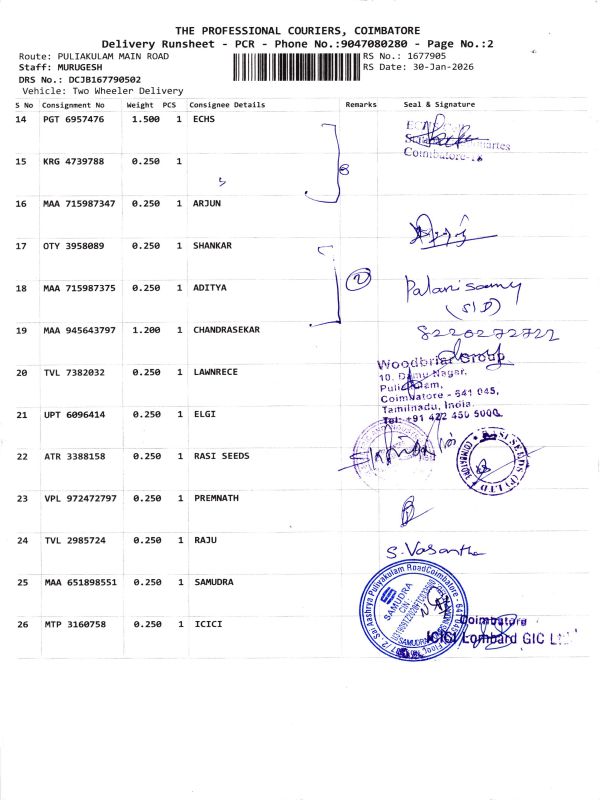 THE PROFESSIONAL COURIERS, COIMBATORE
Delivery Runsheet - PCR - Phone No.:9047080280 - Page No.:2
Route: PULIAKULAM MAIN ROAD
RS No.: 1677905
Staff: MURUGESH
RS Date: 30-Jan-2026
DRS No.: DCJB167790502
Vehicle: Two Wheeler Delivery
S No Consignment No Weight PCS Consignee Details Remarks Seal & Signature
14 PGT 6957476 1.500 1 ECHS
Coimbatore-18
15 KRG 4739788 0.250 1
8
16 MAA 715987347 0.250 1 ARJUN
17 OTY 3958089 0.250 1 SHANKAR
2
18 MAA 715987375 0.250 1 ADITYA
Palanisamy
(S/D)
19 MAA 945643797 1.200 1 CHANDRASEKAR
8220272722
20 TVL 7382032 0.250 1 LAWNRECE
Woodbriar Group
10, Damu Nagar,
Puliakulam,
Coimbatore - 641 045,
Tamilnadu, India.
Tel: +91 422 450 5000
21 UPT 6096414 0.250 1 ELGI
22 ATR 3388158 0.250 1 RASI SEEDS
RASI SEEDS (P) LTD
COIMBATORE
23 VPL 972472797 0.250 1 PREMNATH
24 TVL 2985724 0.250 1 RAJU
S. Vasantha
25 MAA 651898551 0.250 1 SAMUDRA
SAMUDRA
Sai Aashrya Puliyakulam Road Coimbatore - 641045
26 MTP 3160758 0.250 1 ICICI
Coimbatore
ICICI Lombard GIC Ltd